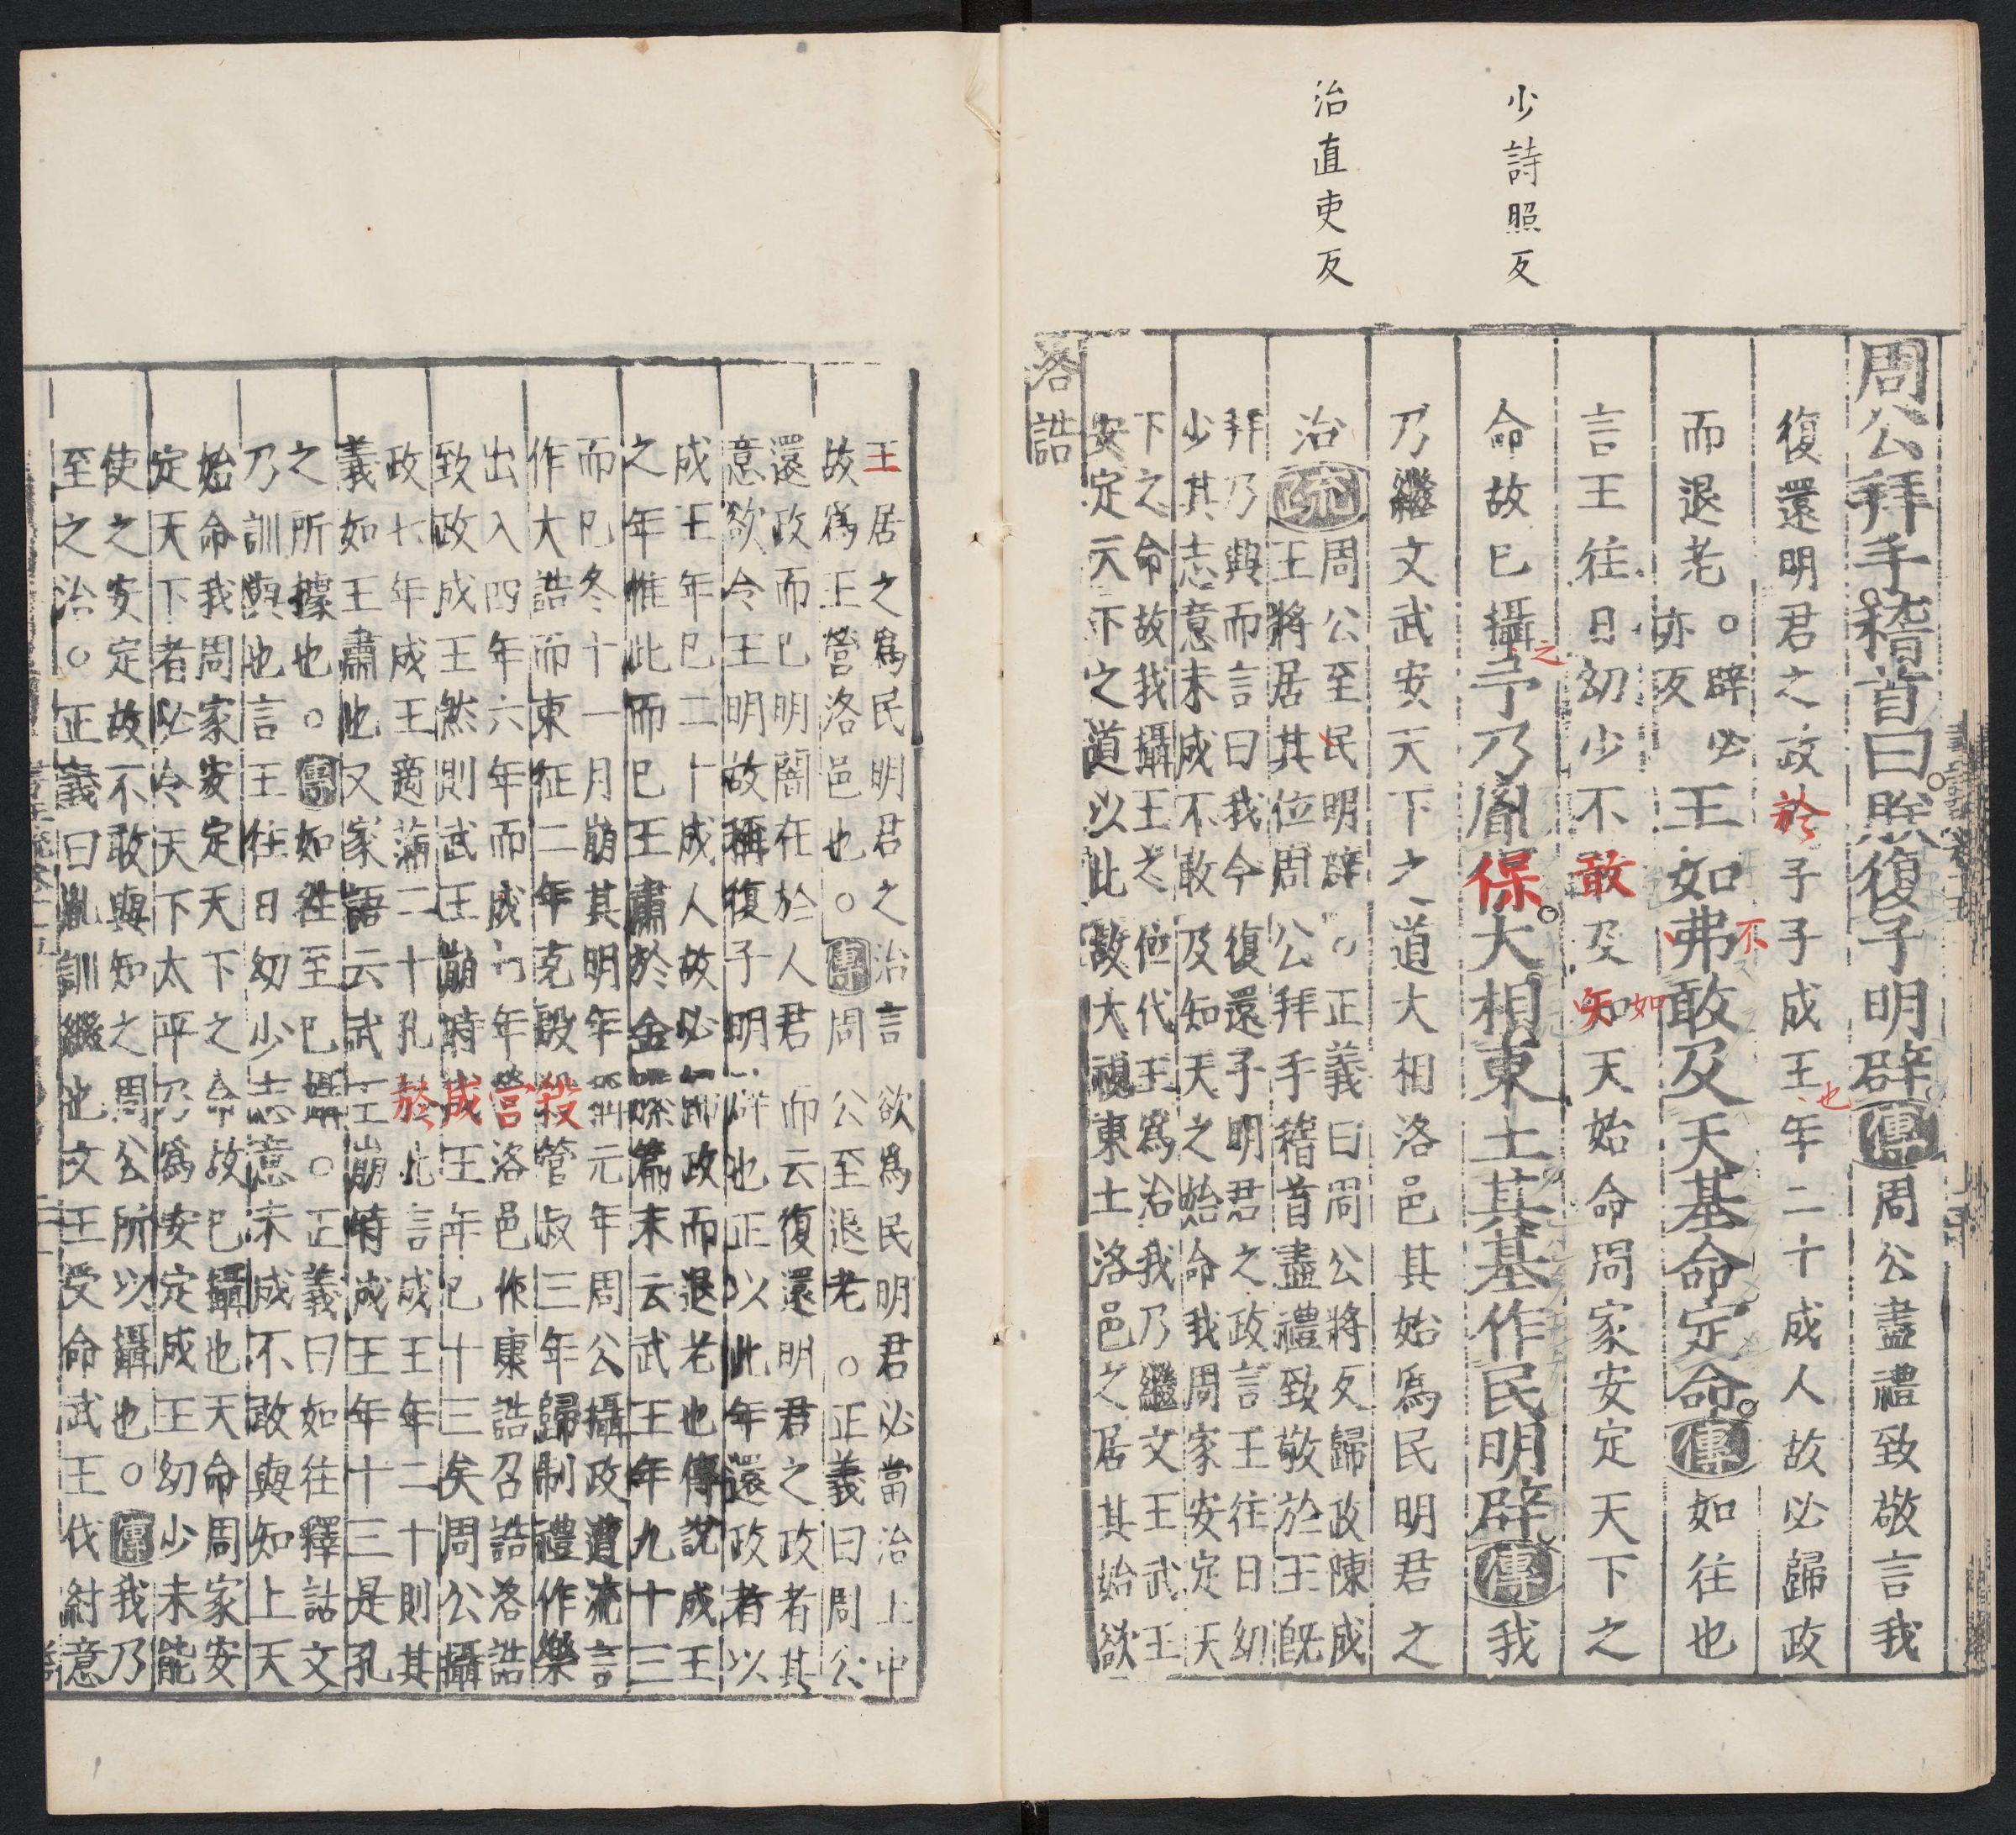 少詩照反
治直吏反
周公拜手稽首曰朕復子明辟傳周公盡禮致敬言我
復還明君之政於子子成王年二十成人故必歸政
也
而退老。辟必
亦反
王如弗敢及天基命定命傳如往也
不
言王往日幼少不敢及知天始命周家安定天下之
如
命故已攝予乃胤保大相東土其基作民明辟傳我
之
乃繼文武安天下之道大相洛邑其始爲民明君之
治疏
周公至民明辟。正義曰周公將反歸政陳成
王將居其位周公拜手稽首盡禮致敬於王既
拜乃興而言曰我今復還子明君之政言王往日幼
少其志意未成不敢及知天之始命我周家安定天
下之命故我攝王之位代王爲治我乃繼文王武王
安定天下之道以此故大視東土洛邑之居其始欲
洛誥
王居之爲民明君之治言欲爲民明君必當治土中
故爲王營洛邑也。傳周公至退老。正義曰周公
還政而已明闇在於人君而云復還明君之政者其
意欲令王明故稱復子明辟也正以此年還政者以
成王年已二十成人故必歸政而退老也傳說成王
之年惟此而已王肅於金縢篇末云武王年九十三
而已冬十一月崩其明年稱元年周公攝政遭流言
作大誥而東征二年克殷殺管叔三年歸制禮作樂
出入四年六年而成七年營洛邑作康誥召誥洛誥
致政成王然則武王崩時成王年已十三矣周公攝
政七年成王適滿二十孔於此言成王年二十則其
義如王肅也又家語云武王崩時成王年十三是孔
之所據也。傳如往至已攝。正義曰如往釋詁文
乃訓與也言王往日幼少志意未成不敢與知上天
始命我周家安定天下之命故已攝也天命周家安
定天下者必令天下太平乃爲安定成王幼少未能
使之安定故不敢與知之周公所以攝也。傳我乃
至之治。正義曰胤訓繼也文王受命武王伐紂意